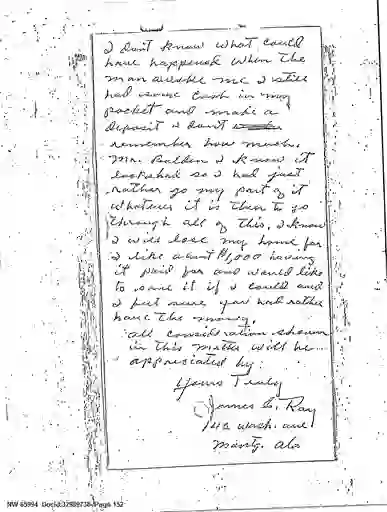 I dont know what could
have happened when the
man awoke me I still
had some Cash in my
pocket and make a
deposit I dont
remember how much.
Mr. Bolden I know it
looks bad so I had just
rather go my part of it
whatever it is then to go
through all of this, I know
I will lose my home for
I like about $1,000 having
it paid for and would like
to save it if I could and
I feel sure you had rather
have the money.
all consideration shown
in this matter will be
appreciated by:
Yours Truly
James E. Ray
142 Wash. ave
Montg. Ala
NW 65994 Docid:32989738 Page 152